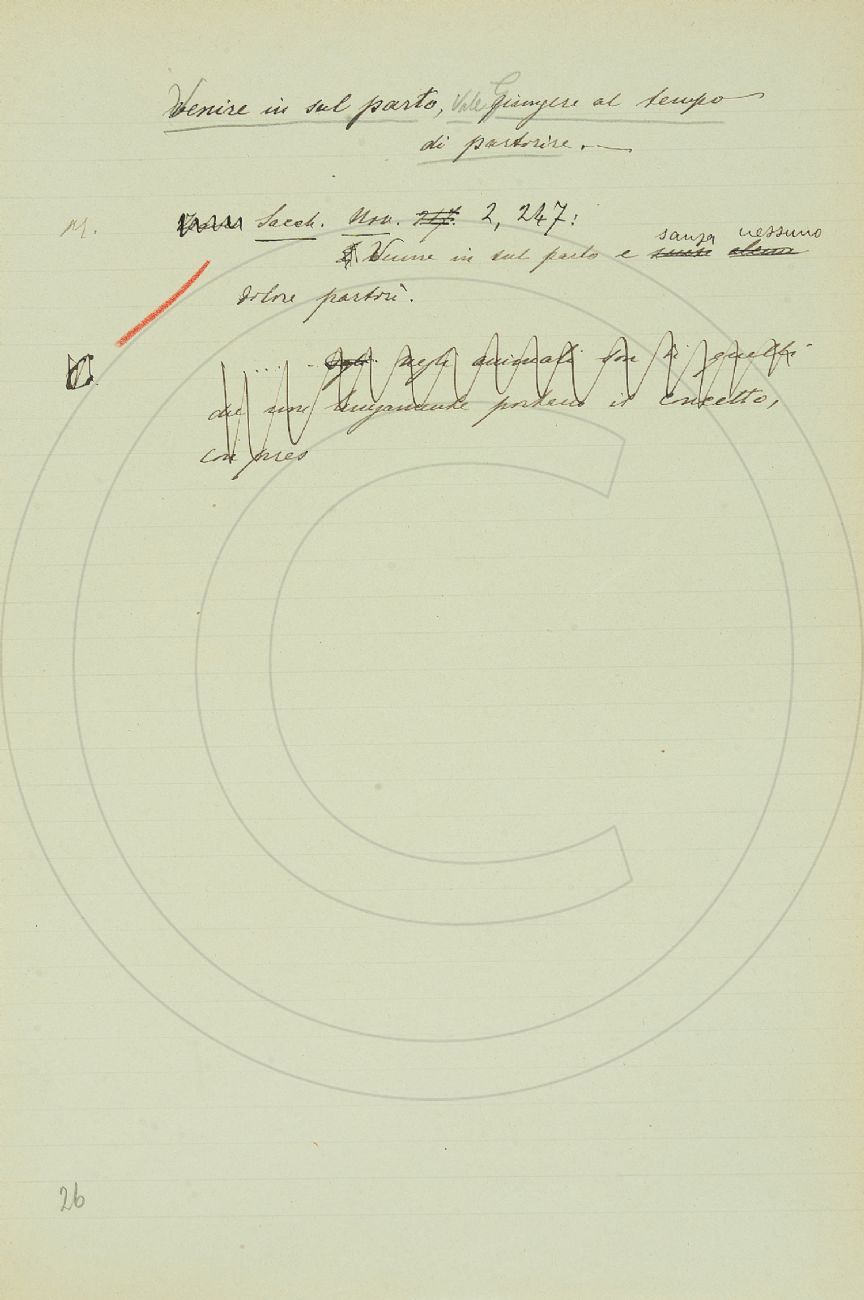 Venire in sul parto, Vale Giungere al tempo
di partorire. —
M. Sacch. Nov. 247. 2, 247:
Venne in sul parto e sanza nessuno
dolore partorì.
..... negli animali son di quelli
che non lungamente portano il concetto,
con pres
26